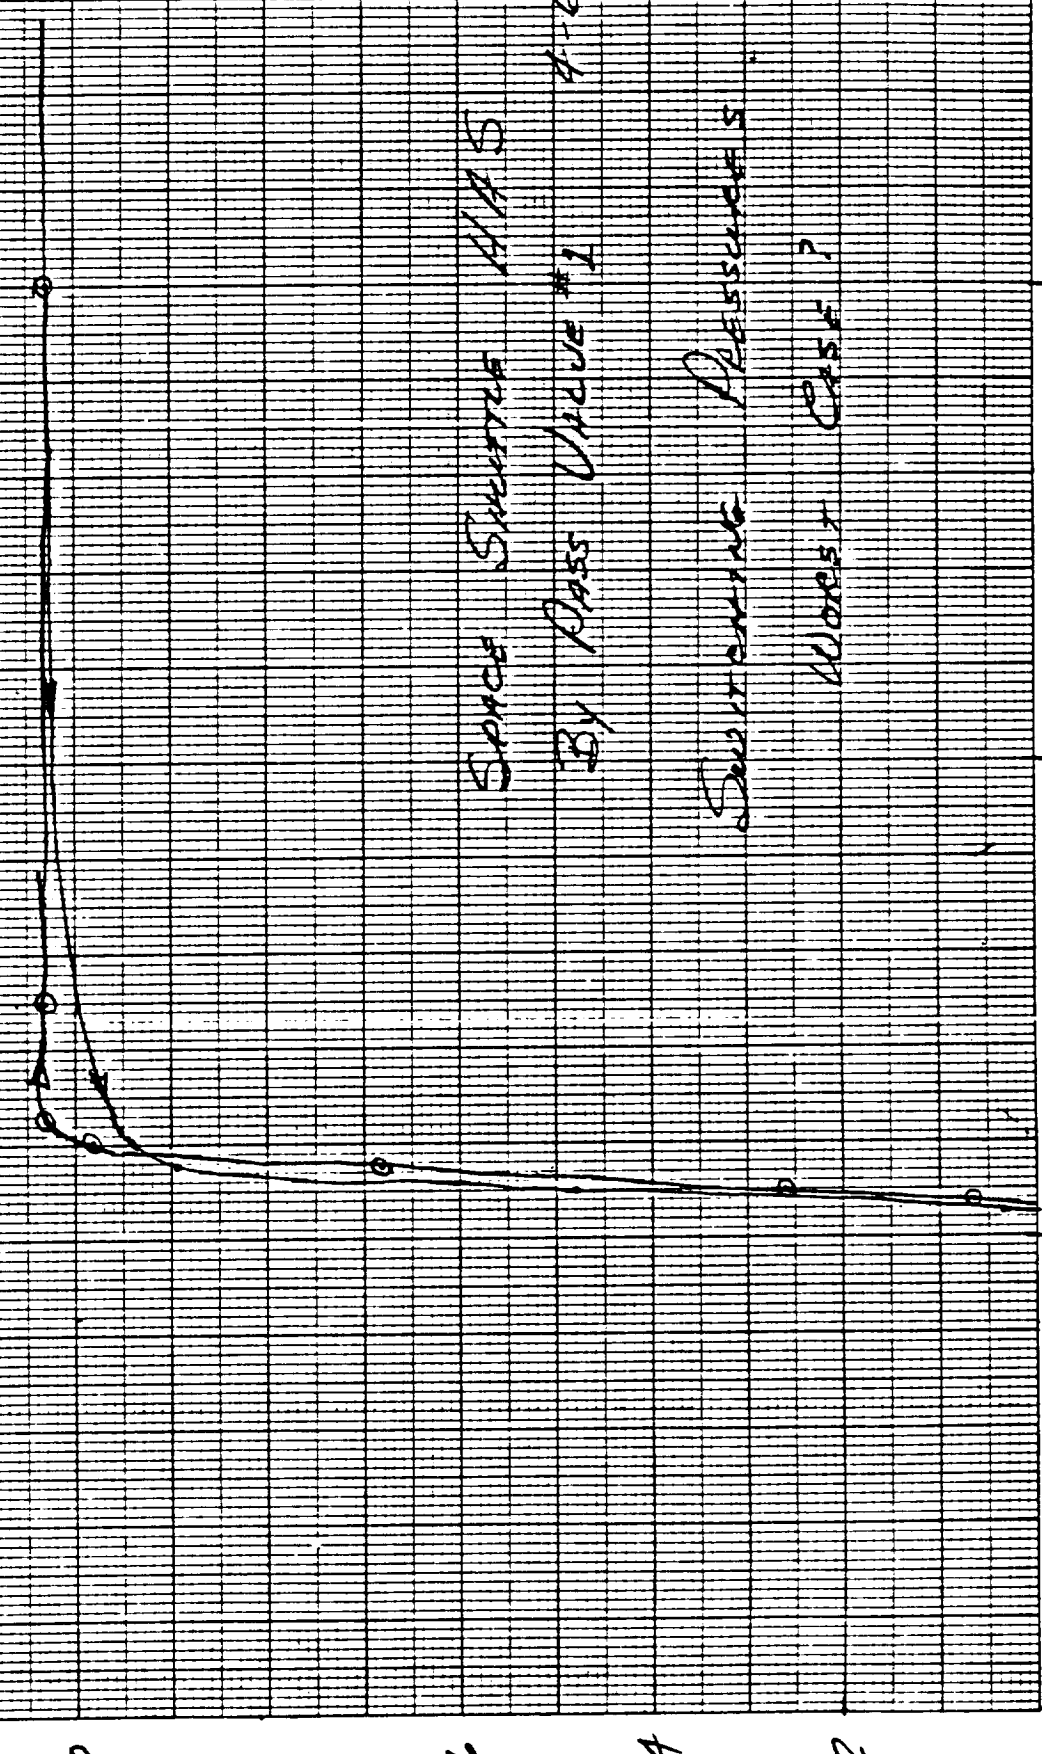 SPACE SHUTTLE HAS
BY PASS VALVE #1 4-
SWITCHING PRESSURES
WORST CASE?
4
2